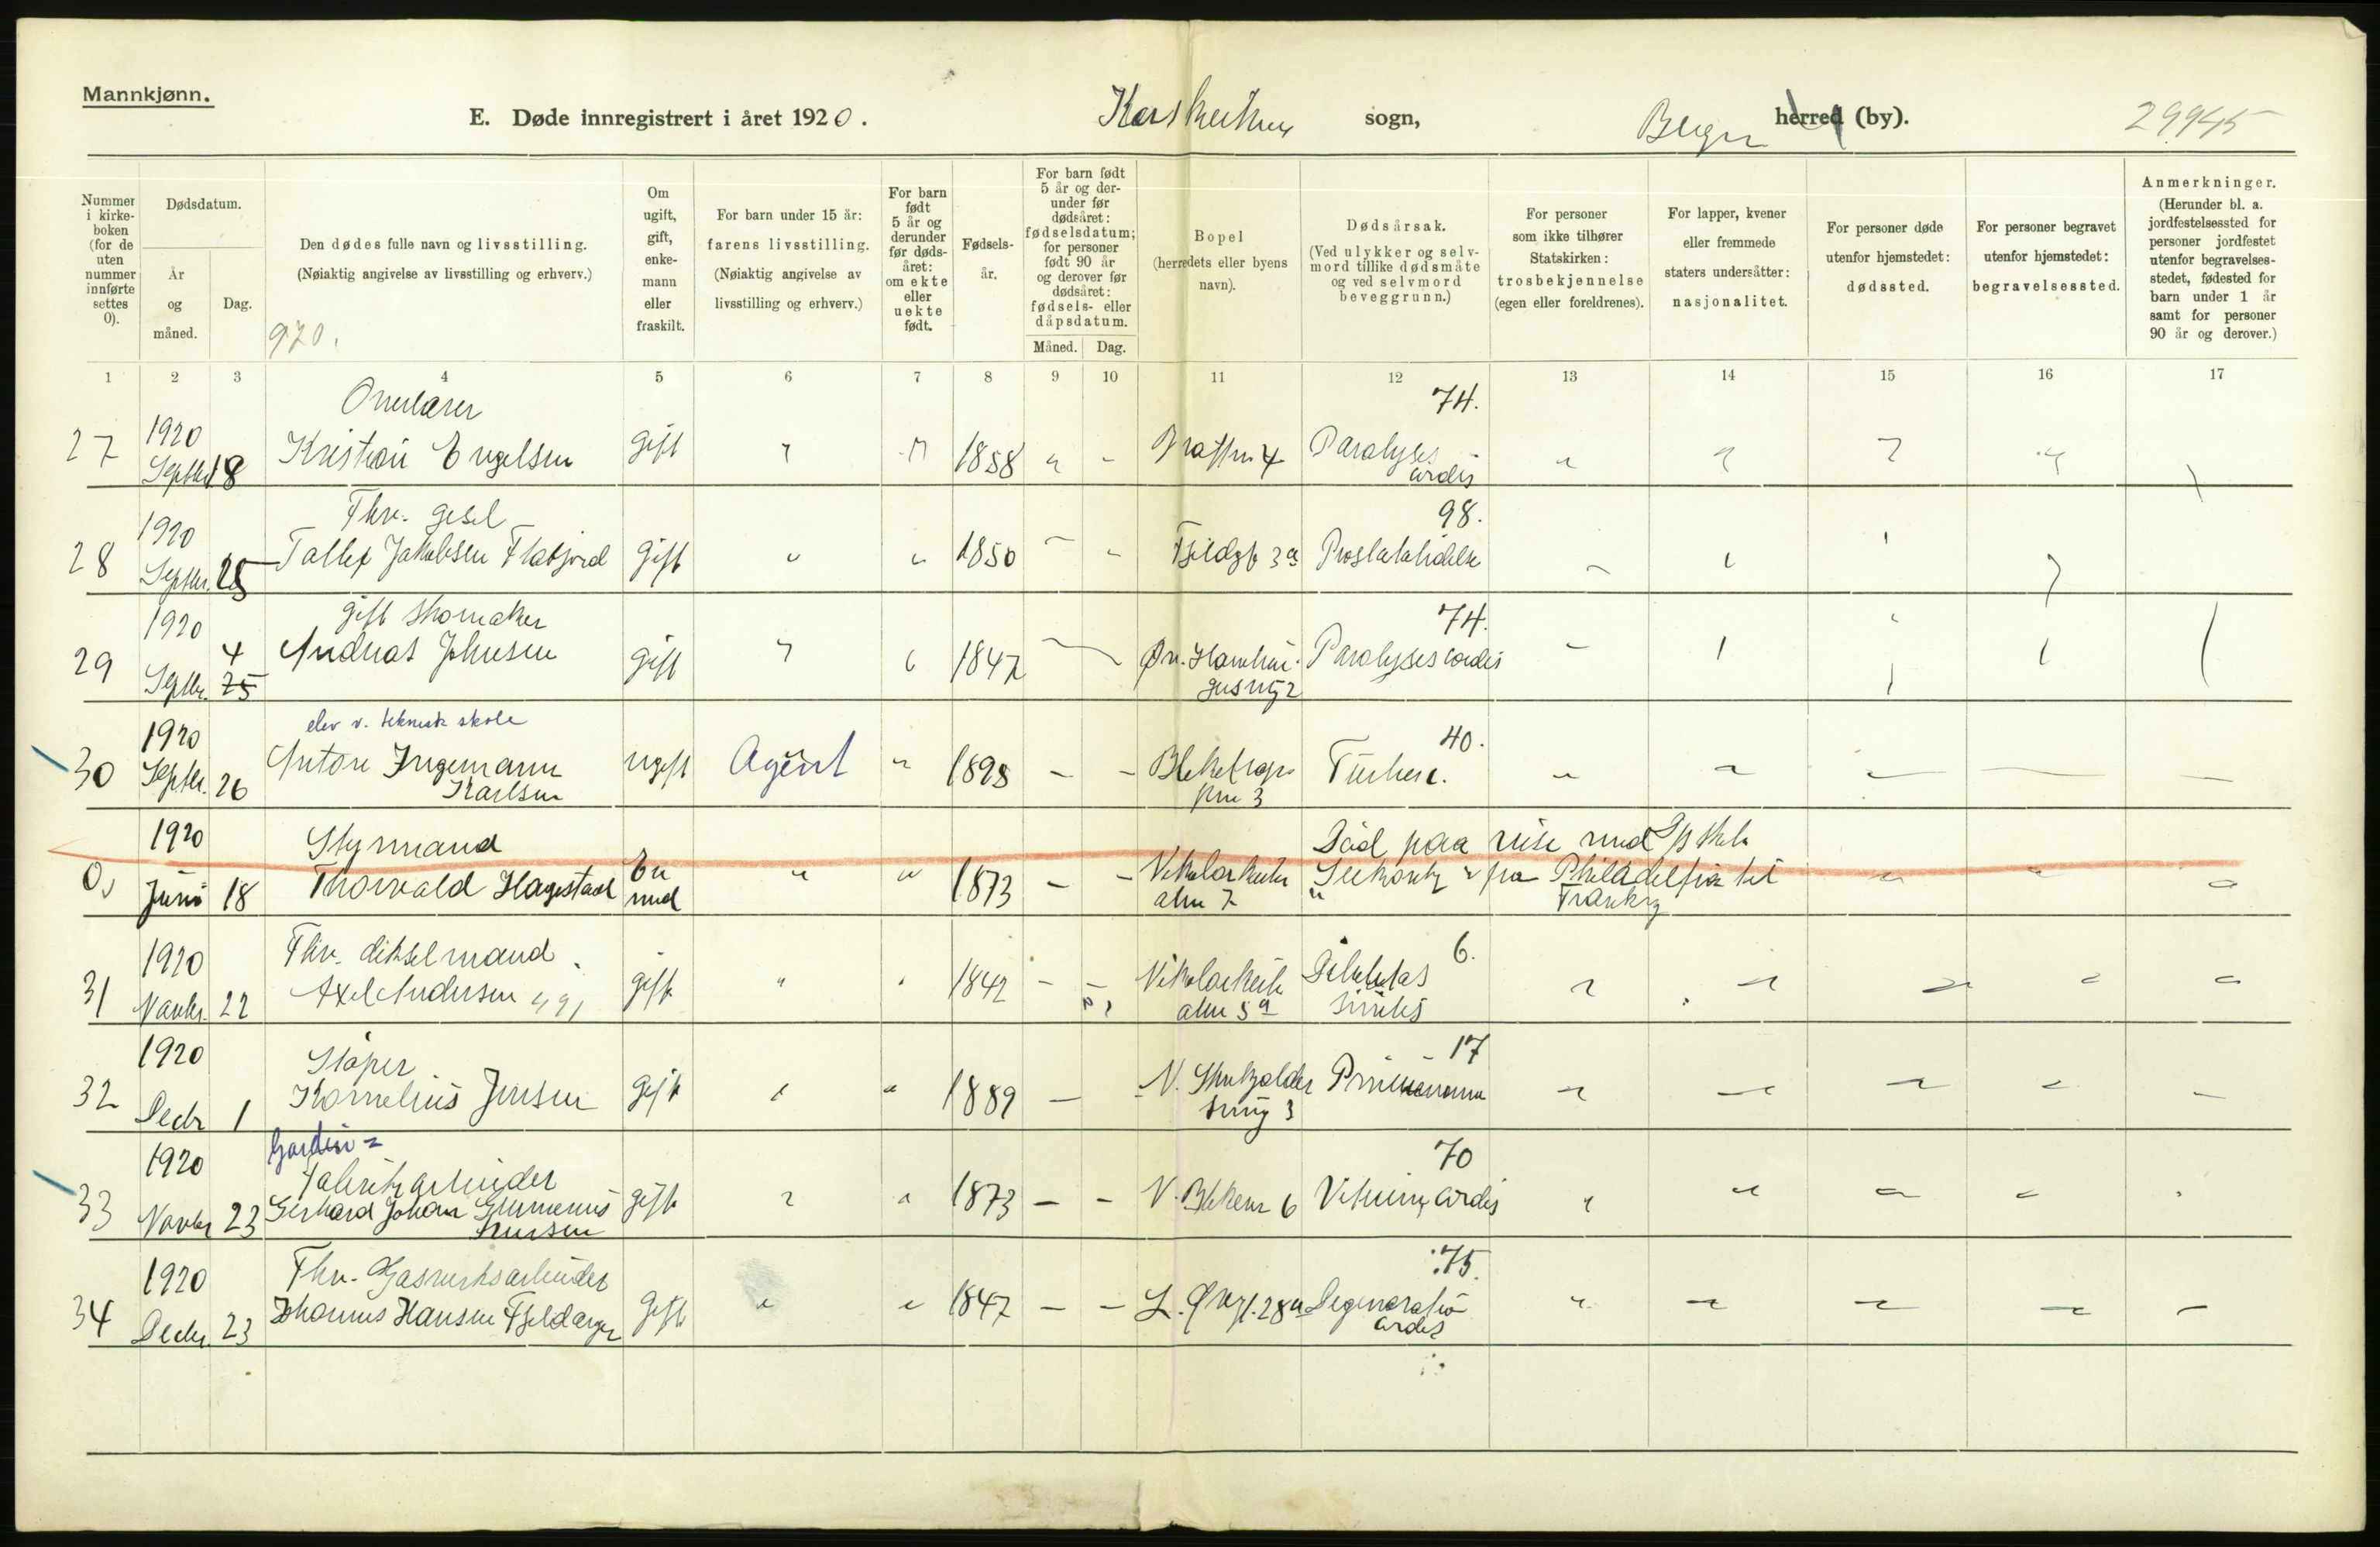 Mannkjønn.
E. Døde innregistrert i året 1920. Korskirken sogn, herred (by). 29945
Nummer i kirkeboken (for de uten nummer innførte settes 0).
Dødsdatum.
År og måned.
Dag.
Den dødes fulle navn og livsstilling.
(Nøiaktig angivelse av livsstilling og erhverv.)
920.
Om ugift, gift, enkemann eller fraskilt.
For barn under 15 år: farens livsstilling.
(Nøiaktig angivelse av livsstilling og erhverv.)
For barn født 5 år og derunder før dødsåret: om ekte eller uekte født.
Fødselsår.
For barn født 5 år og derunder før dødsåret: fødselsdatum; for personer født 90 år og derover før dødsåret: fødsels- eller dåpsdatum.
Måned. Dag.
Bopel
(herredets eller byens navn).
Dødsårsak.
(Ved ulykker og selvmord tillike dødsmåte og ved selvmord beveggrunn.)
For personer som ikke tilhører Statskirken: trosbekjennelse (egen eller foreldrenes).
For lapper, kvener eller fremmede staters undersåtter: nasjonalitet.
For personer døde utenfor hjemstedet: dødssted.
For personer begravet utenfor hjemstedet: begravelsessted.
Anmerkninger.
(Herunder bl. a. jordfestelsessted for personer jordfestet utenfor begravelsesstedet, fødested for barn under 1 år samt for personer 90 år og derover.)
1 2 3 4 5 6 7 8 9 10 11 12 13 14 15 16 17
74.
27 1920 Septbr 18 Kristian Engelsen gift " " 1858 " - 4 Paralyses cordis
Fhv. gesel 98.
28 1920 Septbr. 25 Jakobsen gift " " 1850 - - 3a Prostatalidelse
gift Skomaker 74.
29 1920 Septbr. 4 25 Andreas Johnsen gift " " 1847 Paralyses cordis
elev v. teknisk skole 40.
30 1920 Septbr. 26 Anton Ingemann Karlsen ugift Agent " 1898 - - 3
Styrmand
0, 1920 Juni 18 Thorvald Hagestad En md " " 1873 - - Nikolaikirke alm 7 Död paa reise med fra Philadelfia til Frankrg
Fhv. 6.
31 1920 Novbr. 22 Axel Andersen 491 gift " " 1842 - - Nikolaikirk alm 5a
17
32 1920 Decbr 1 Kornelius Jensen gift " " 1889 - 3
Gardin= 70
33 1920 Novbr 23 fabrikarbeider Gerhard Johan gift " " 1873 - - 6 Vitium cordis
Fhv. Gasverksarbeider 75.
34 1920 Decbr. 23 Johannes Hansen gift " " 1847 - - 28a Degeneratio cordis